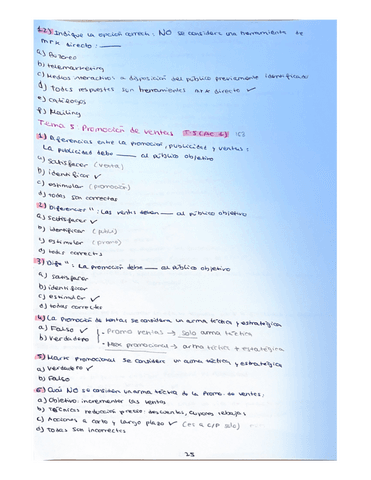 12) Indique la opción correcta: NO se considera una herramienta de
MTK directo: ____
a) Buzoneo
b) telemarketing
c) Medios interactivos a disposición del público previamente identificado
d) Todas respuestas son herramientas MTK directo ✓
e) catálogos
f) Mailing
Tema 5: Promoción de ventas
1) Diferencias entre la promoción, publicidad y ventas:
La publicidad debe ____ al público objetivo
a) Satisfacer (venta)
b) identificar ✓
c) estimular (promoción)
d) todas son correctas
2) Diferencias ": Las ventas deben ____ al público objetivo
a) Satisfacer ✓
b) identificar (public)
c) estimular (promo)
d) todas correctas
3) Dife ": La promoción debe ____ al público objetivo
a) satisfacer
b) identificar
c) estimular ✓
d) todas correctas
4) La promoción de ventas se considera un arma táctica y estratégica
a) Falso ✓
b) Verdadero
- Promo ventas → solo arma táctica
- Mark promocional → arma táctica + estratégica
5) Mark promocional se considera un arma táctica y estratégica
a) Verdadero ✓
b) Falso
6) Cuál NO se considera un arma táctica de la Promo. de ventas:
a) Objetivo: incrementar las ventas
b) Técnicas reducción precio: descuentos, cupones, rebajas
c) Acciones a corto y largo plazo ✓ (es a C/P solo)
d) Todas son incorrectas
25